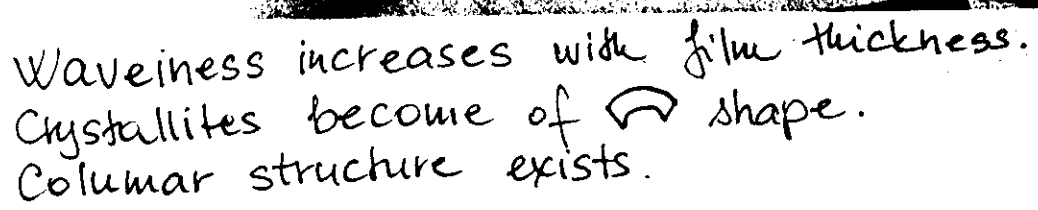 Waveiness increases with film thickness.
Crystallites become of shape.
Columar structure exists.